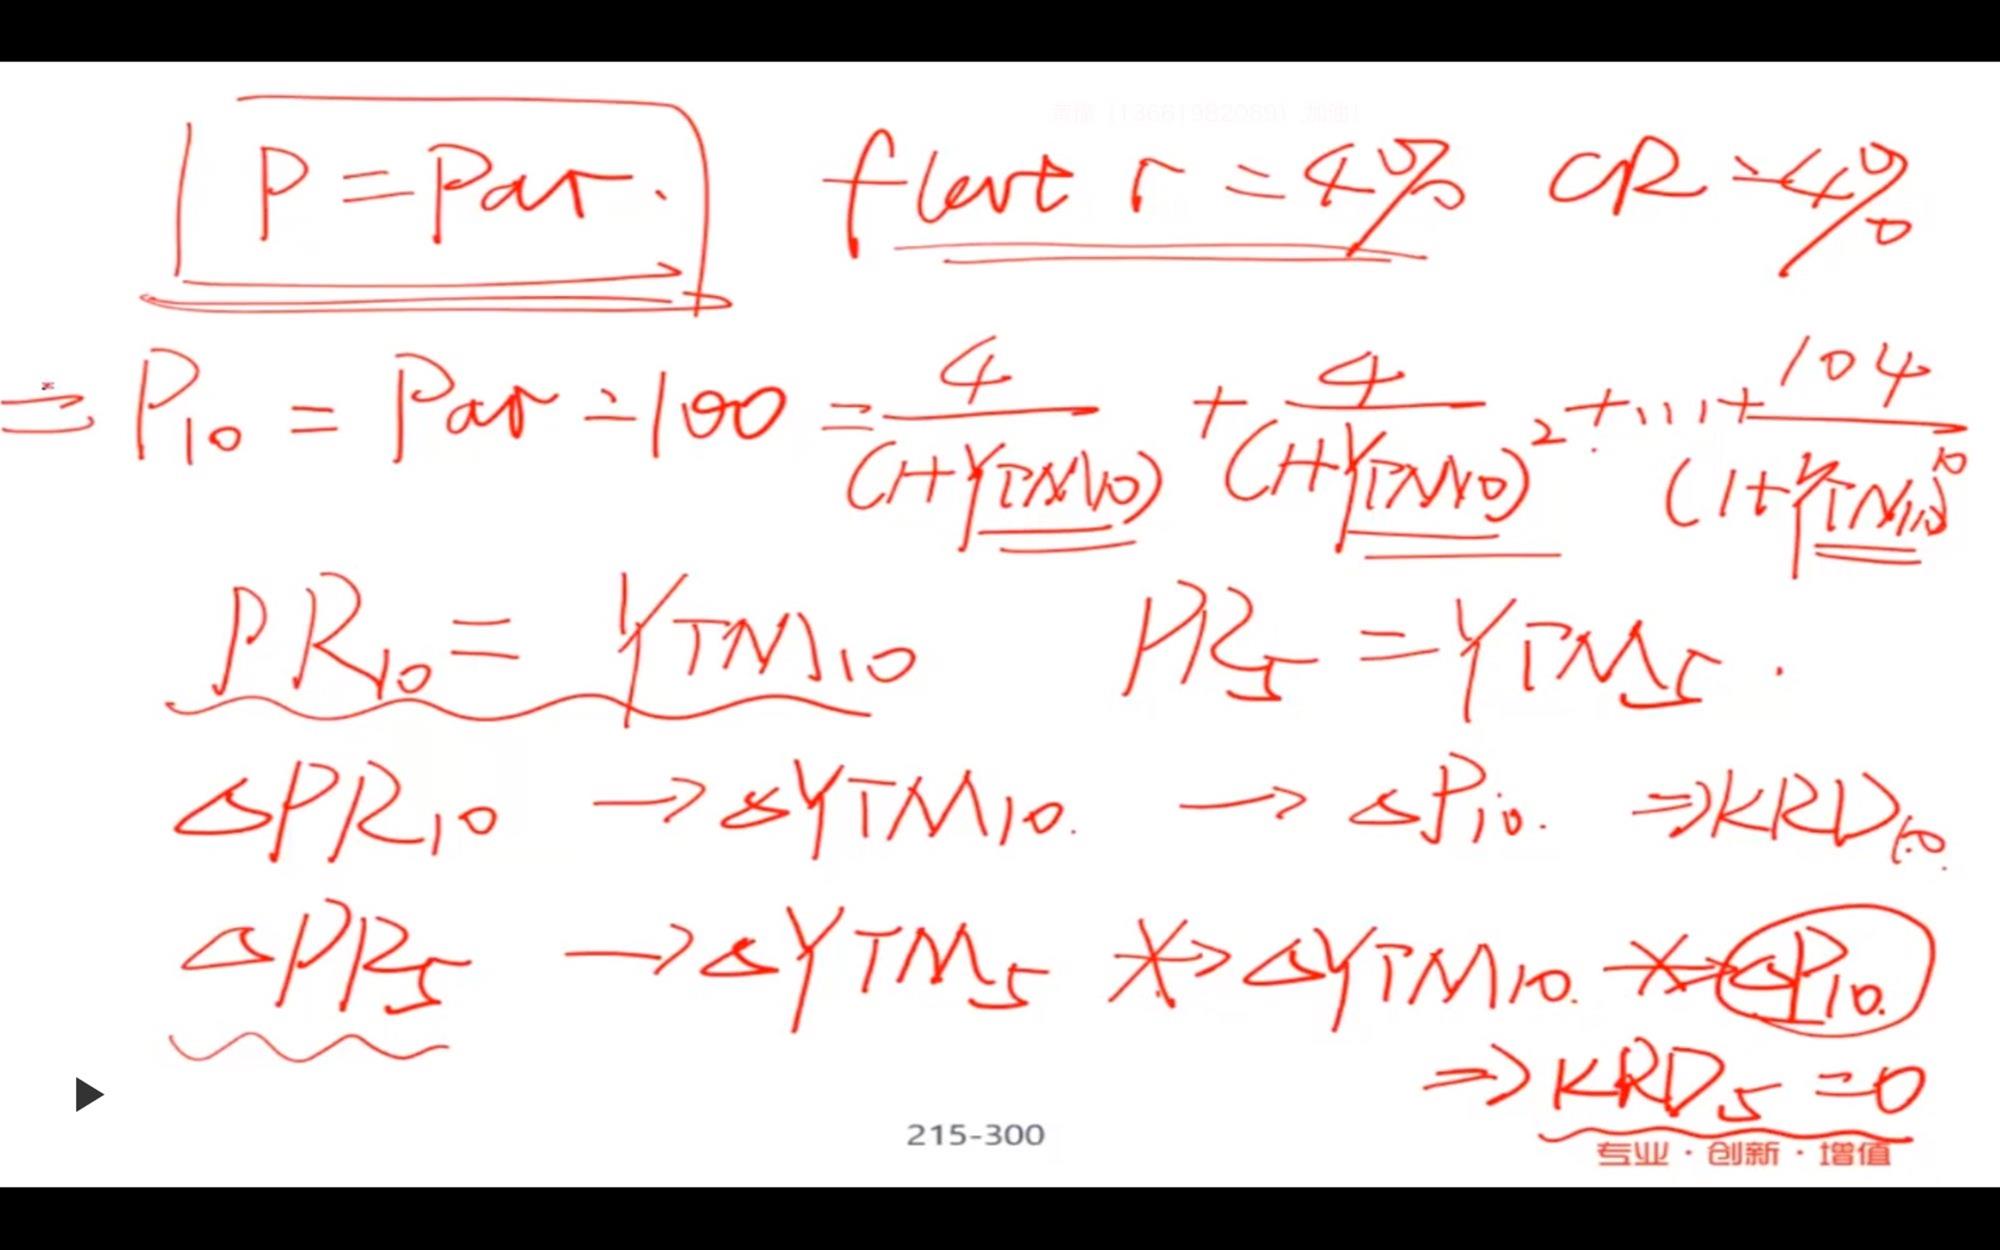 P = Par. flat r = 4% CR = 4%
⇒ P₁₀ = Par = 100 = 4/(1+YTM10) + 4/(1+YTM10)² + ... + 104/(1+YTM10)¹⁰
PR₁₀ = YTM₁₀ PR₅ = YTM₅.
△PR₁₀ → △YTM₁₀. → △P₁₀. ⇒ KRD₁₀.
△PR₅ → △YTM₅ ↛ △YTM₁₀. ↛ △P₁₀.
⇒ KRD₅ = 0
215-300
专业·创新·增值